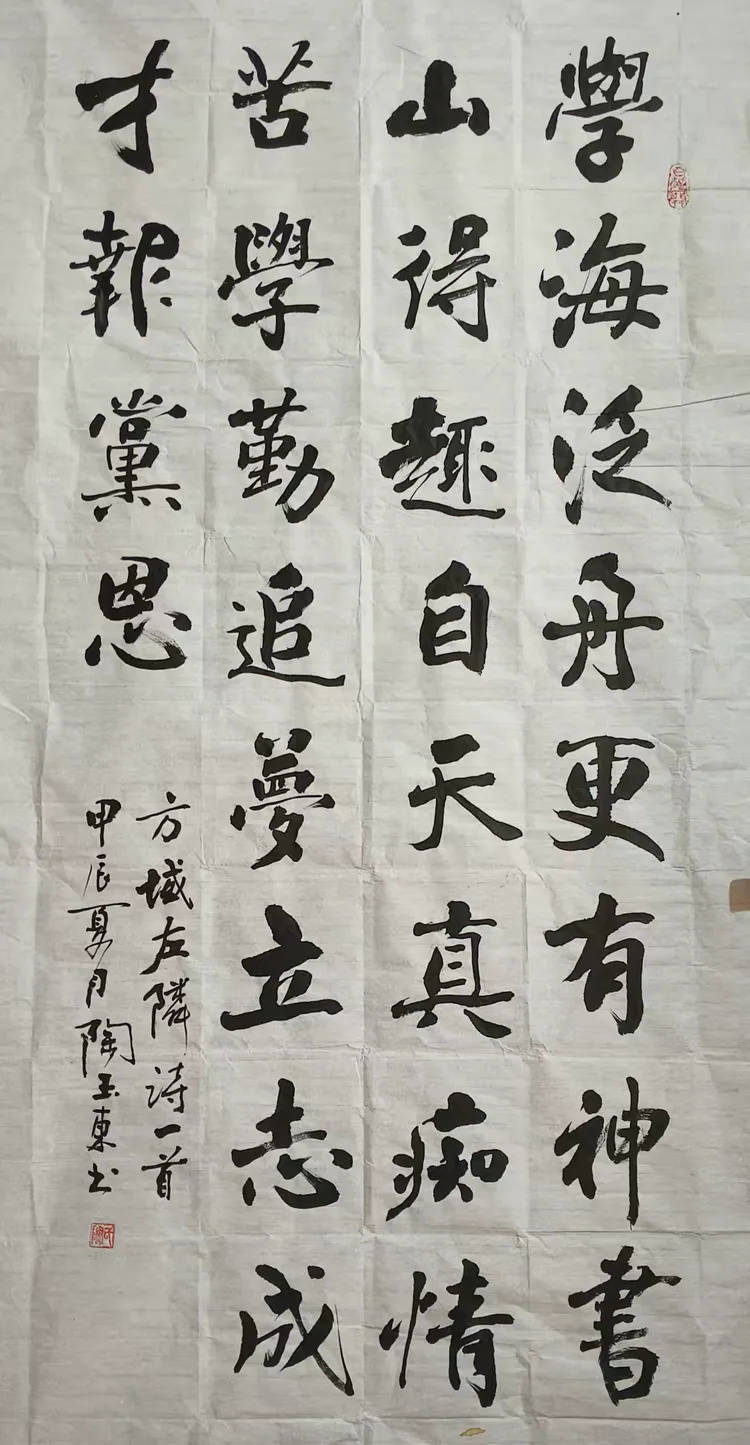 學海泛舟更有神書
山得趣自天真痴情
苦學勤追夢立志成
才報黨恩
方城左隣诗一首
甲辰夏月陶玉東书